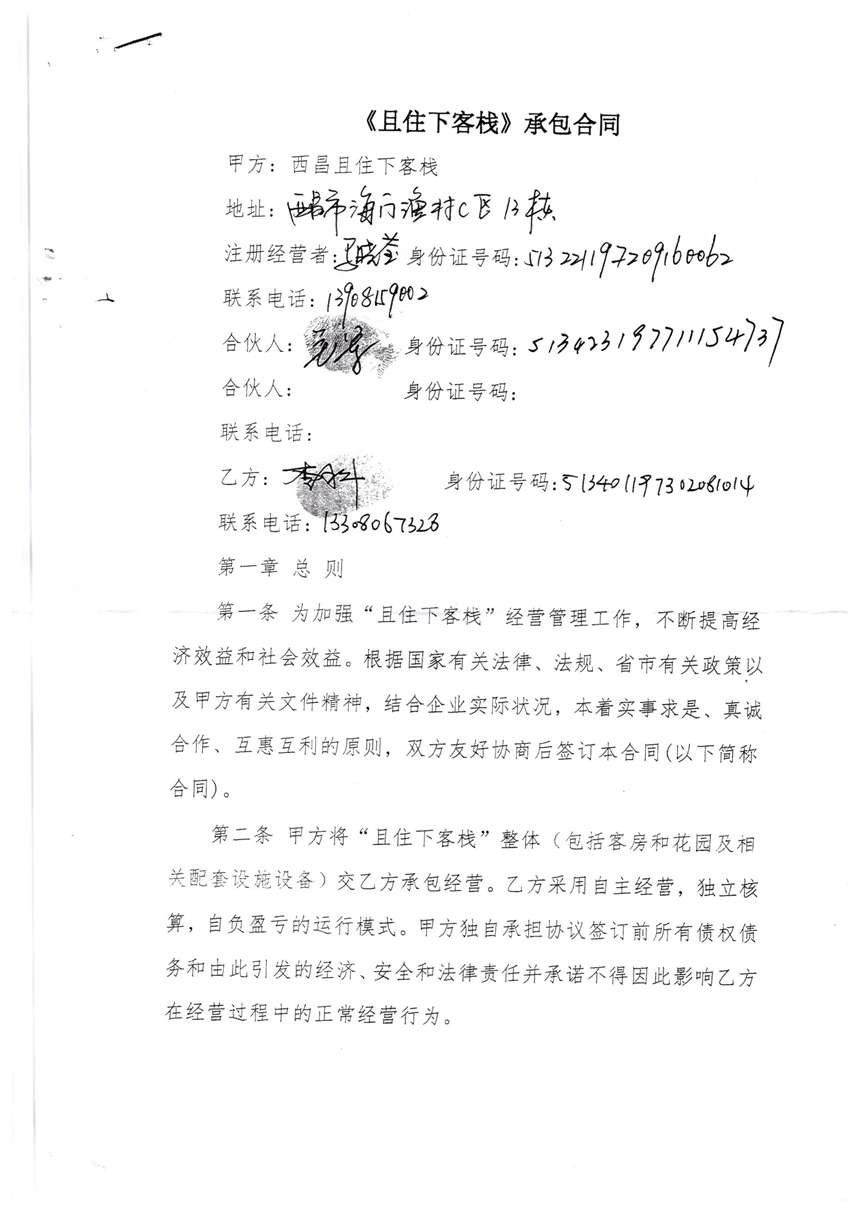 《且住下客栈》承包合同
甲方：西昌且住下客栈
地址：西昌市海门渔村C区13栋
注册经营者：马晓莹 身份证号码：513221197209160062
联系电话：13908159002
合伙人： 身份证号码：513423197711154737
合伙人： 身份证号码：
联系电话：
乙方： 身份证号码：513401197302081014
联系电话：13308067328
第一章 总 则
第一条 为加强“且住下客栈”经营管理工作，不断提高经
济效益和社会效益。根据国家有关法律、法规、省市有关政策以
及甲方有关文件精神，结合企业实际状况，本着实事求是、真诚
合作、互惠互利的原则，双方友好协商后签订本合同(以下简称
合同)。
第二条 甲方将“且住下客栈”整体（包括客房和花园及相
关配套设施设备）交乙方承包经营。乙方采用自主经营，独立核
算，自负盈亏的运行模式。甲方独自承担协议签订前所有债权债
务和由此引发的经济、安全和法律责任并承诺不得因此影响乙方
在经营过程中的正常经营行为。